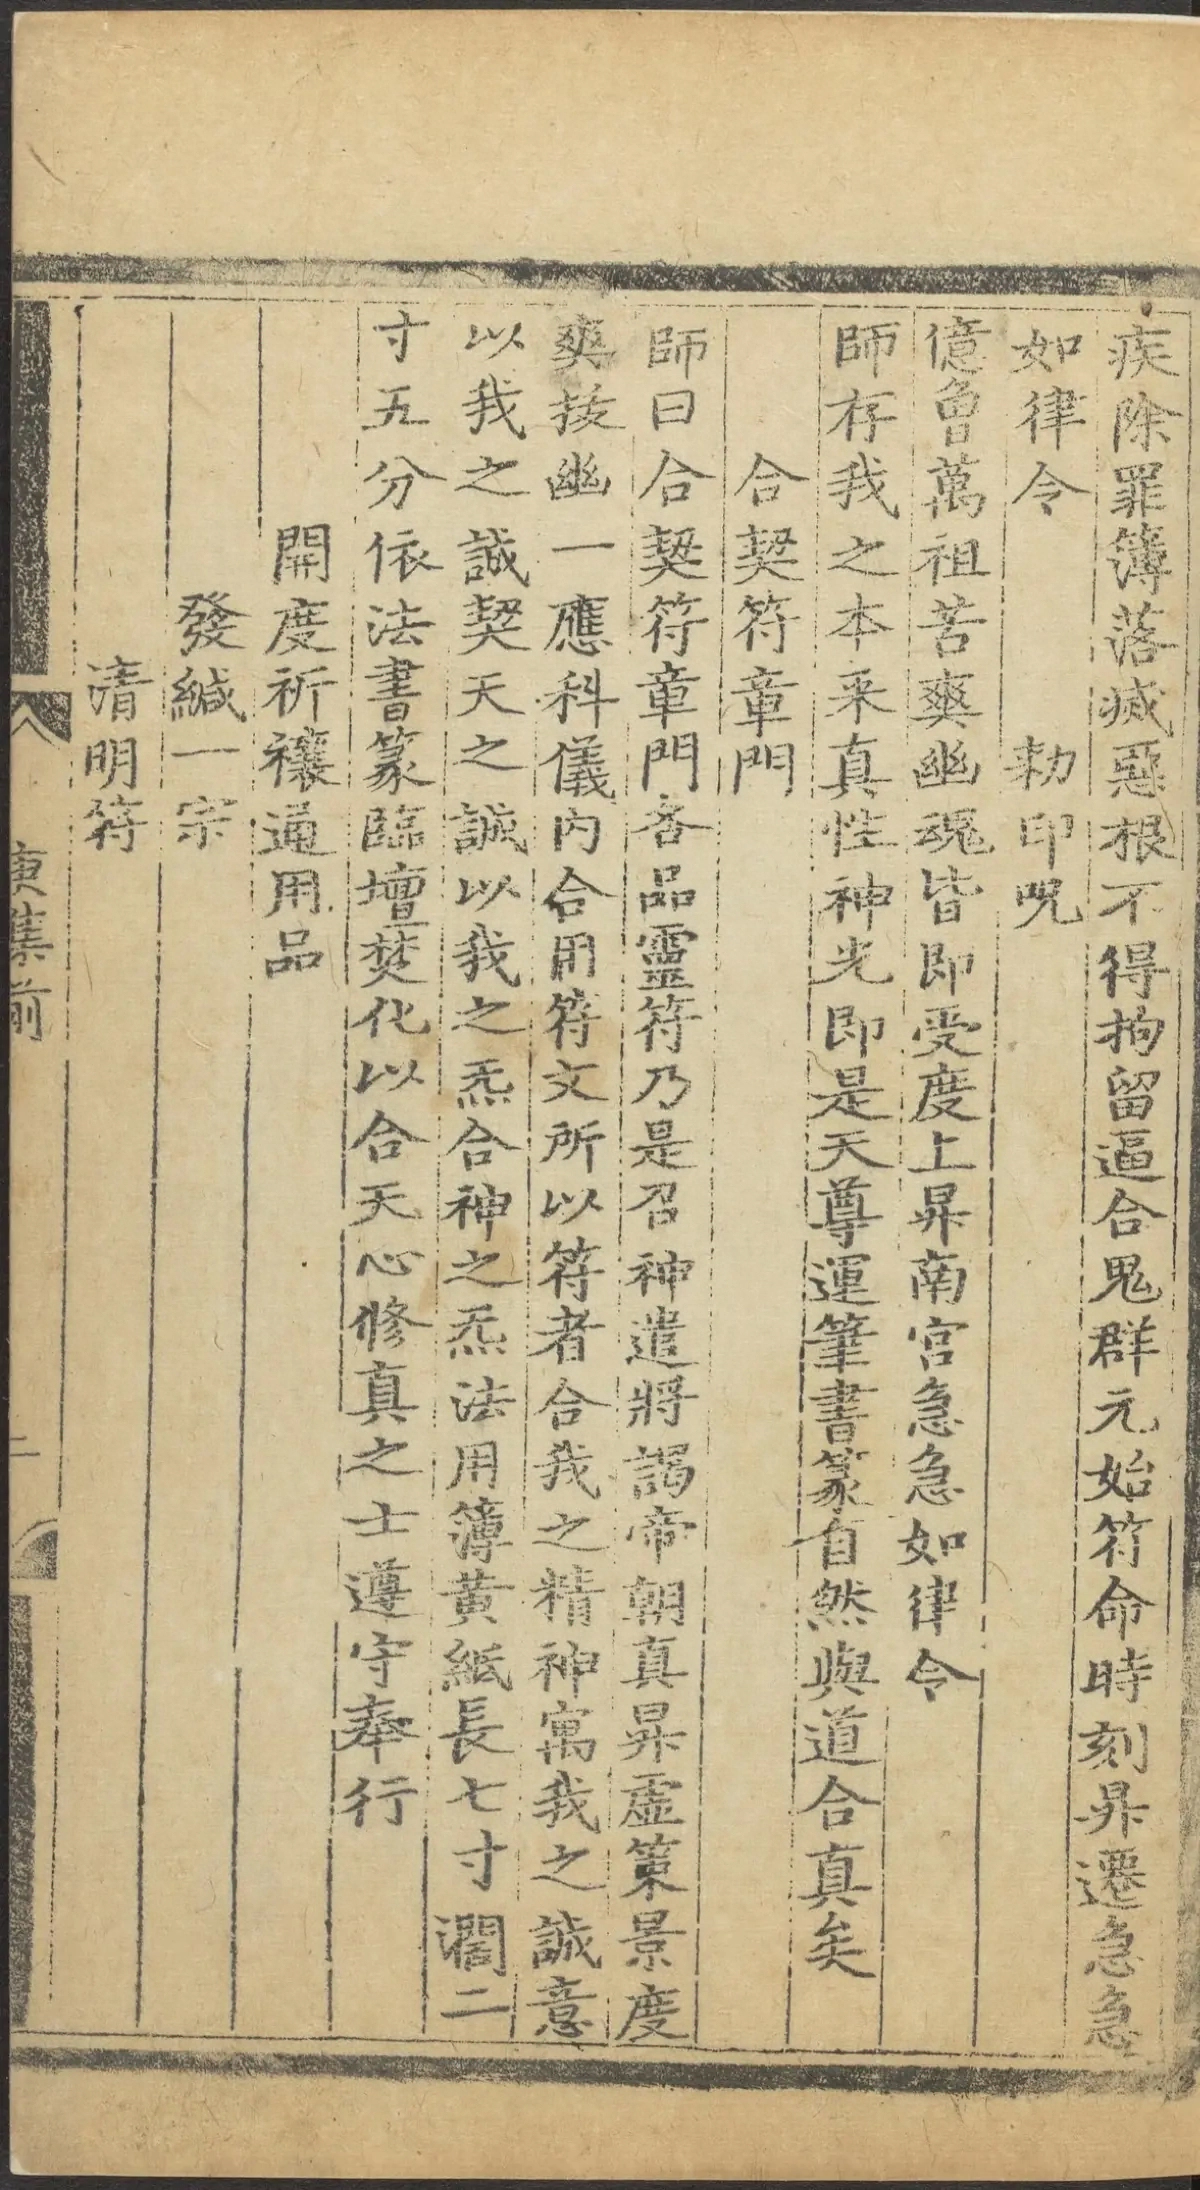 疾除罪簿落滅惡根不得拘留逼合鬼群元始符命時刻昇遷急急
如律令　　　勑印呪
億曾萬祖苦爽幽魂皆即受度上昇南宫急急如律令
師存我之本来真性神光即是天尊運筆書篆自然與道合真矣
合契符章門
師曰合契符章門各品靈符乃是召神遣將謁帝朝真昇虛策景度
爽拔幽一應科儀内合用符文所以符者合我之精神寓我之誠意
以我之誠契天之誠以我之炁合神之炁法用簿黄紙長七寸濶二
寸五分依法書篆臨壇焚化以合天心修真之士遵守奉行
開度祈禳通用品
發緘一宗
清明符
庚集前
二